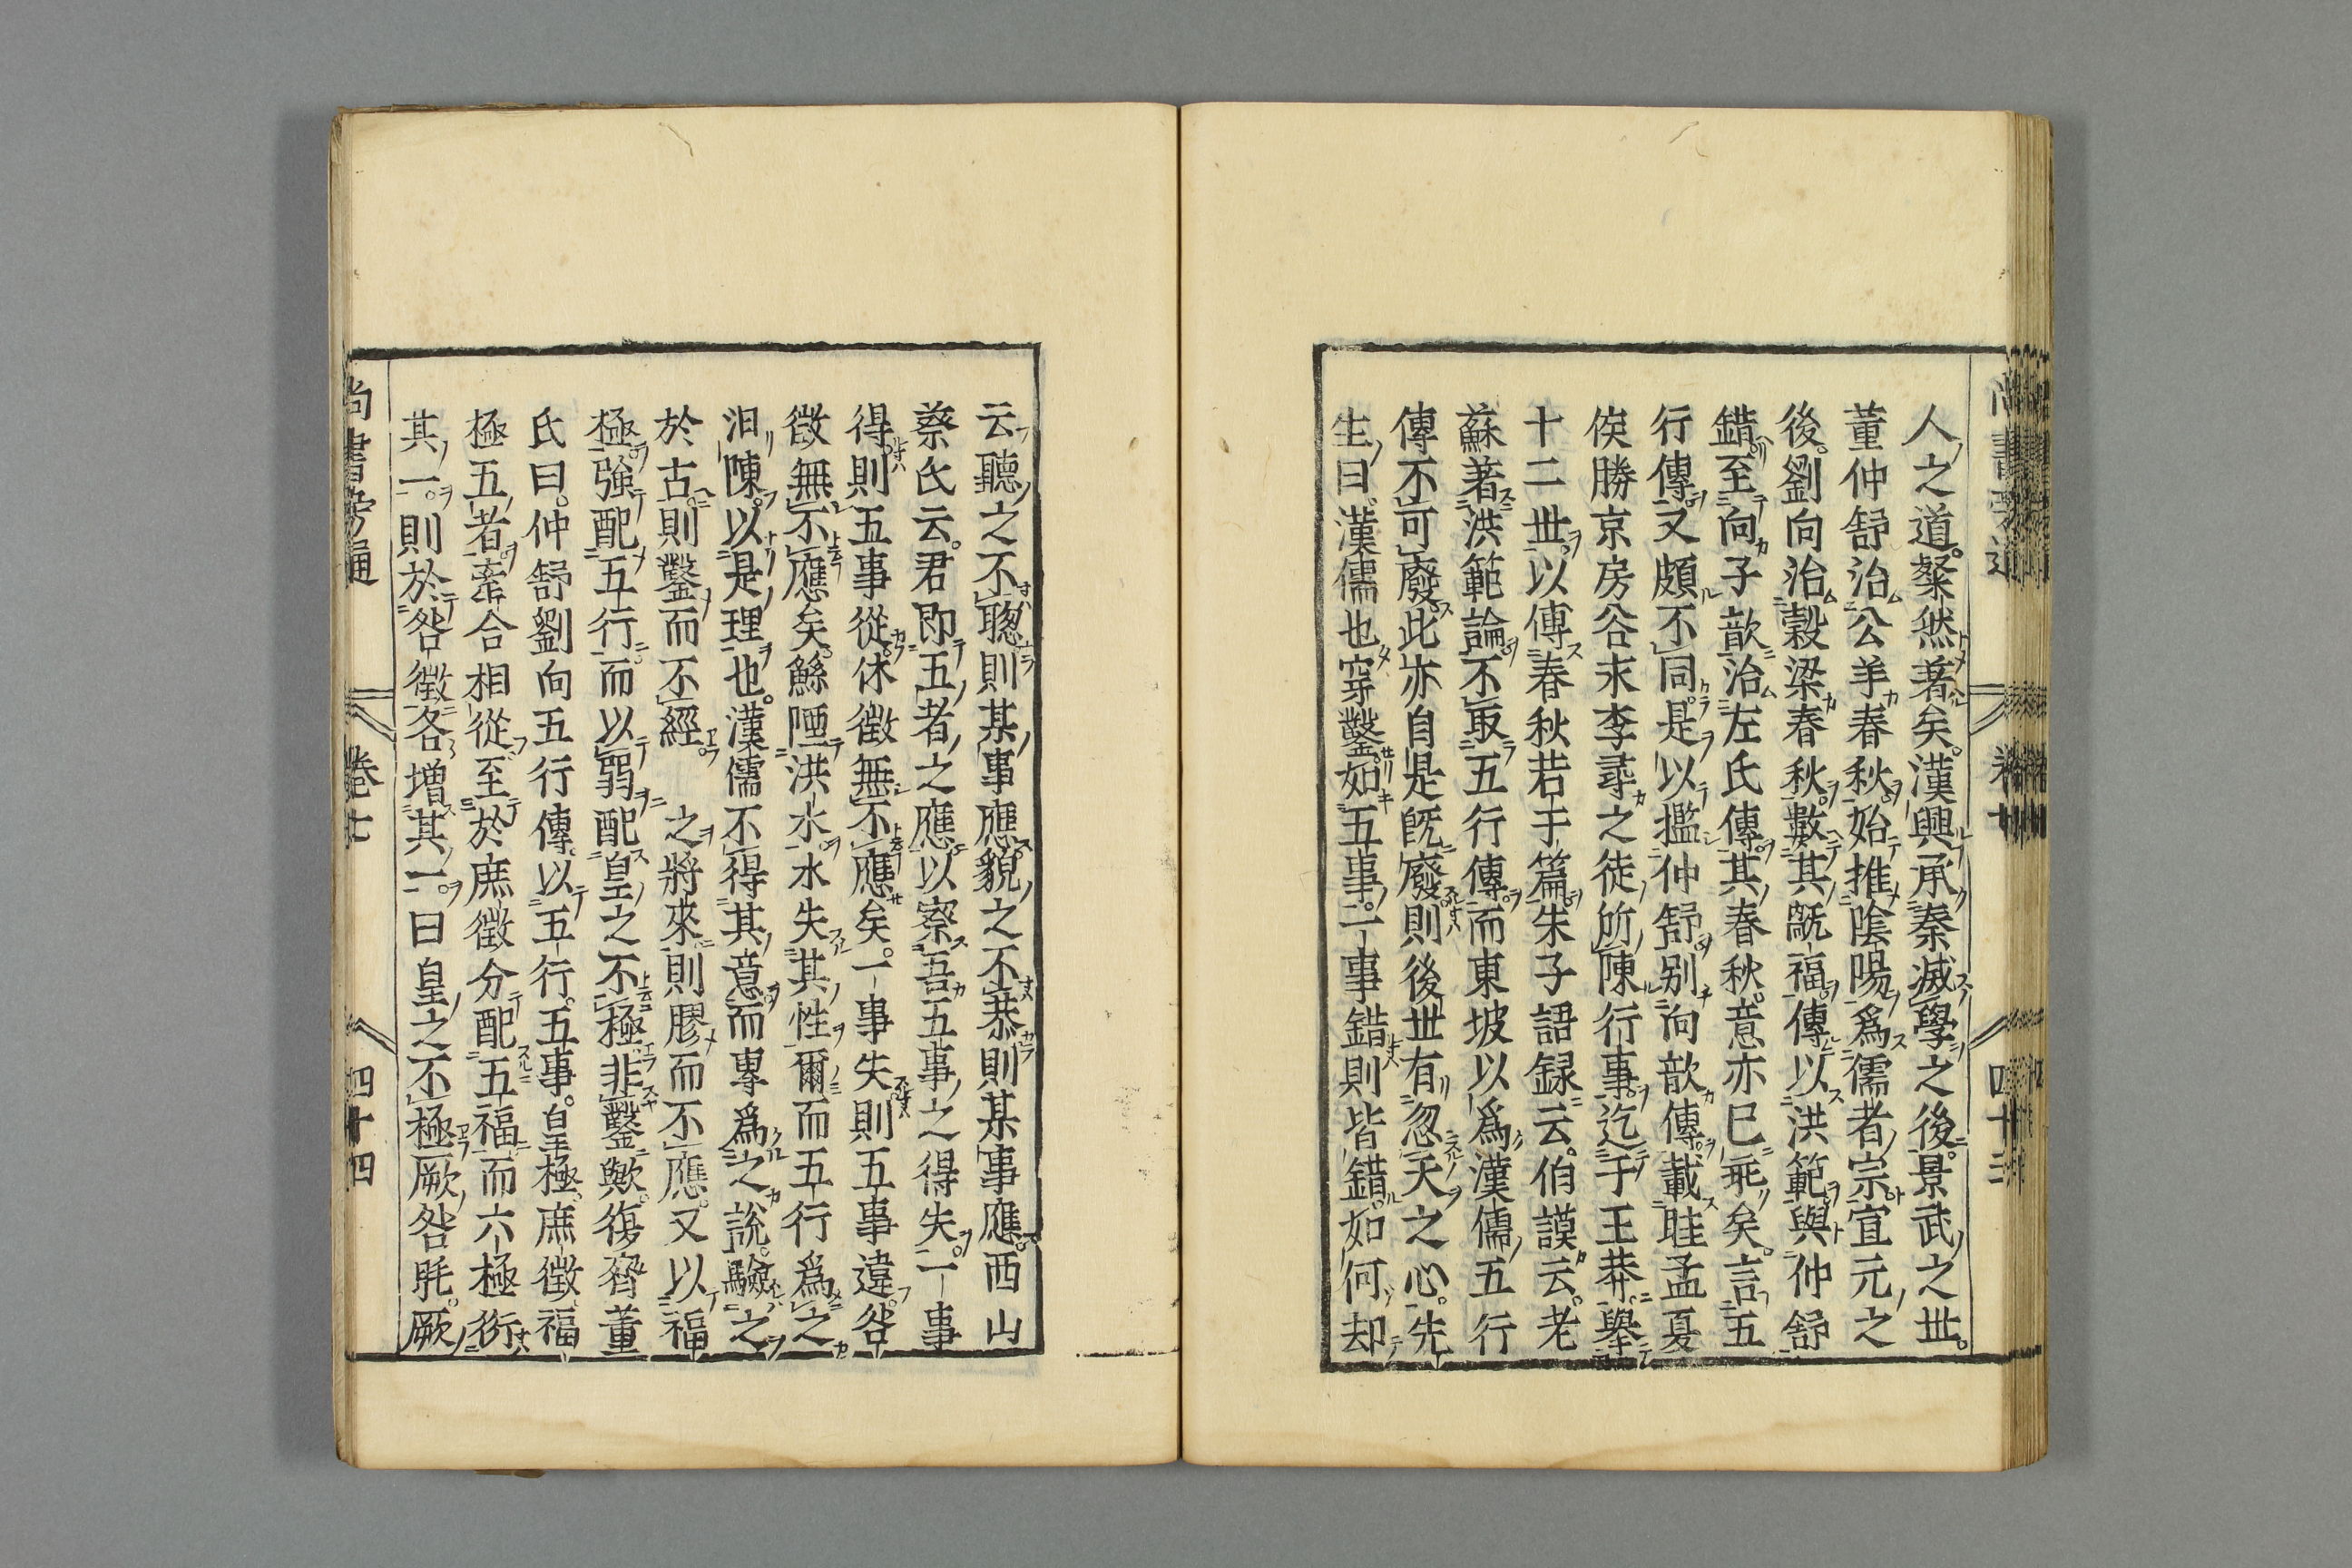 人之道。粲然著矣。漢興承秦滅學之後。景武之世。
董仲舒治公羊春秋。始推陰陽爲儒者宗。宣元之
後。劉向治穀梁春秋。數其旤福。傳以洪範。與仲舒
錯。至向子歆治左氏傳。其春秋。意亦已乖矣。言五
行傳。又頗不同。是以㩜仲舒。別向歆傳。載眭孟夏
侯勝京房谷永李尋之徒所陳行事。迄于王莽。舉
十二世。以傳春秋。若于篇。朱子語録云。伯謨云。老
蘇著洪範論。不取五行傳。而東坡以爲漢儒五行
傳不可廢。此亦自是既廢。則後世有忽天之心。先
生曰。漢儒也穿鑿。如五事。一事錯則皆錯。如何却
云聽之不聰則某事應。貌之不恭則某事應。西山
蔡氏云。君即五者之應。以察吾五事之得失。一事
得。則五事從。休徵無不應矣。一事失。則五事違。咎
徵無不應矣。鯀陻洪水。水失其性爾。而五行爲之
汩陳。以是理也。漢儒不得其意。而專爲之說。驗之
於古。則鑿而不經。之將來。則膠而不應。又以福
極。強配五行。而以弱配皇之不極。非鑿歟。復齋董
氏曰。仲舒劉向五行傳。以五行。五事。皇極。庶徵福
極五者。牽合相從。至於庶徵分配五福。而六極衍
其一。則於咎徵各增其一。曰皇之不極。厥咎眊。厥
尚書旁通
卷七
四十四
四十三